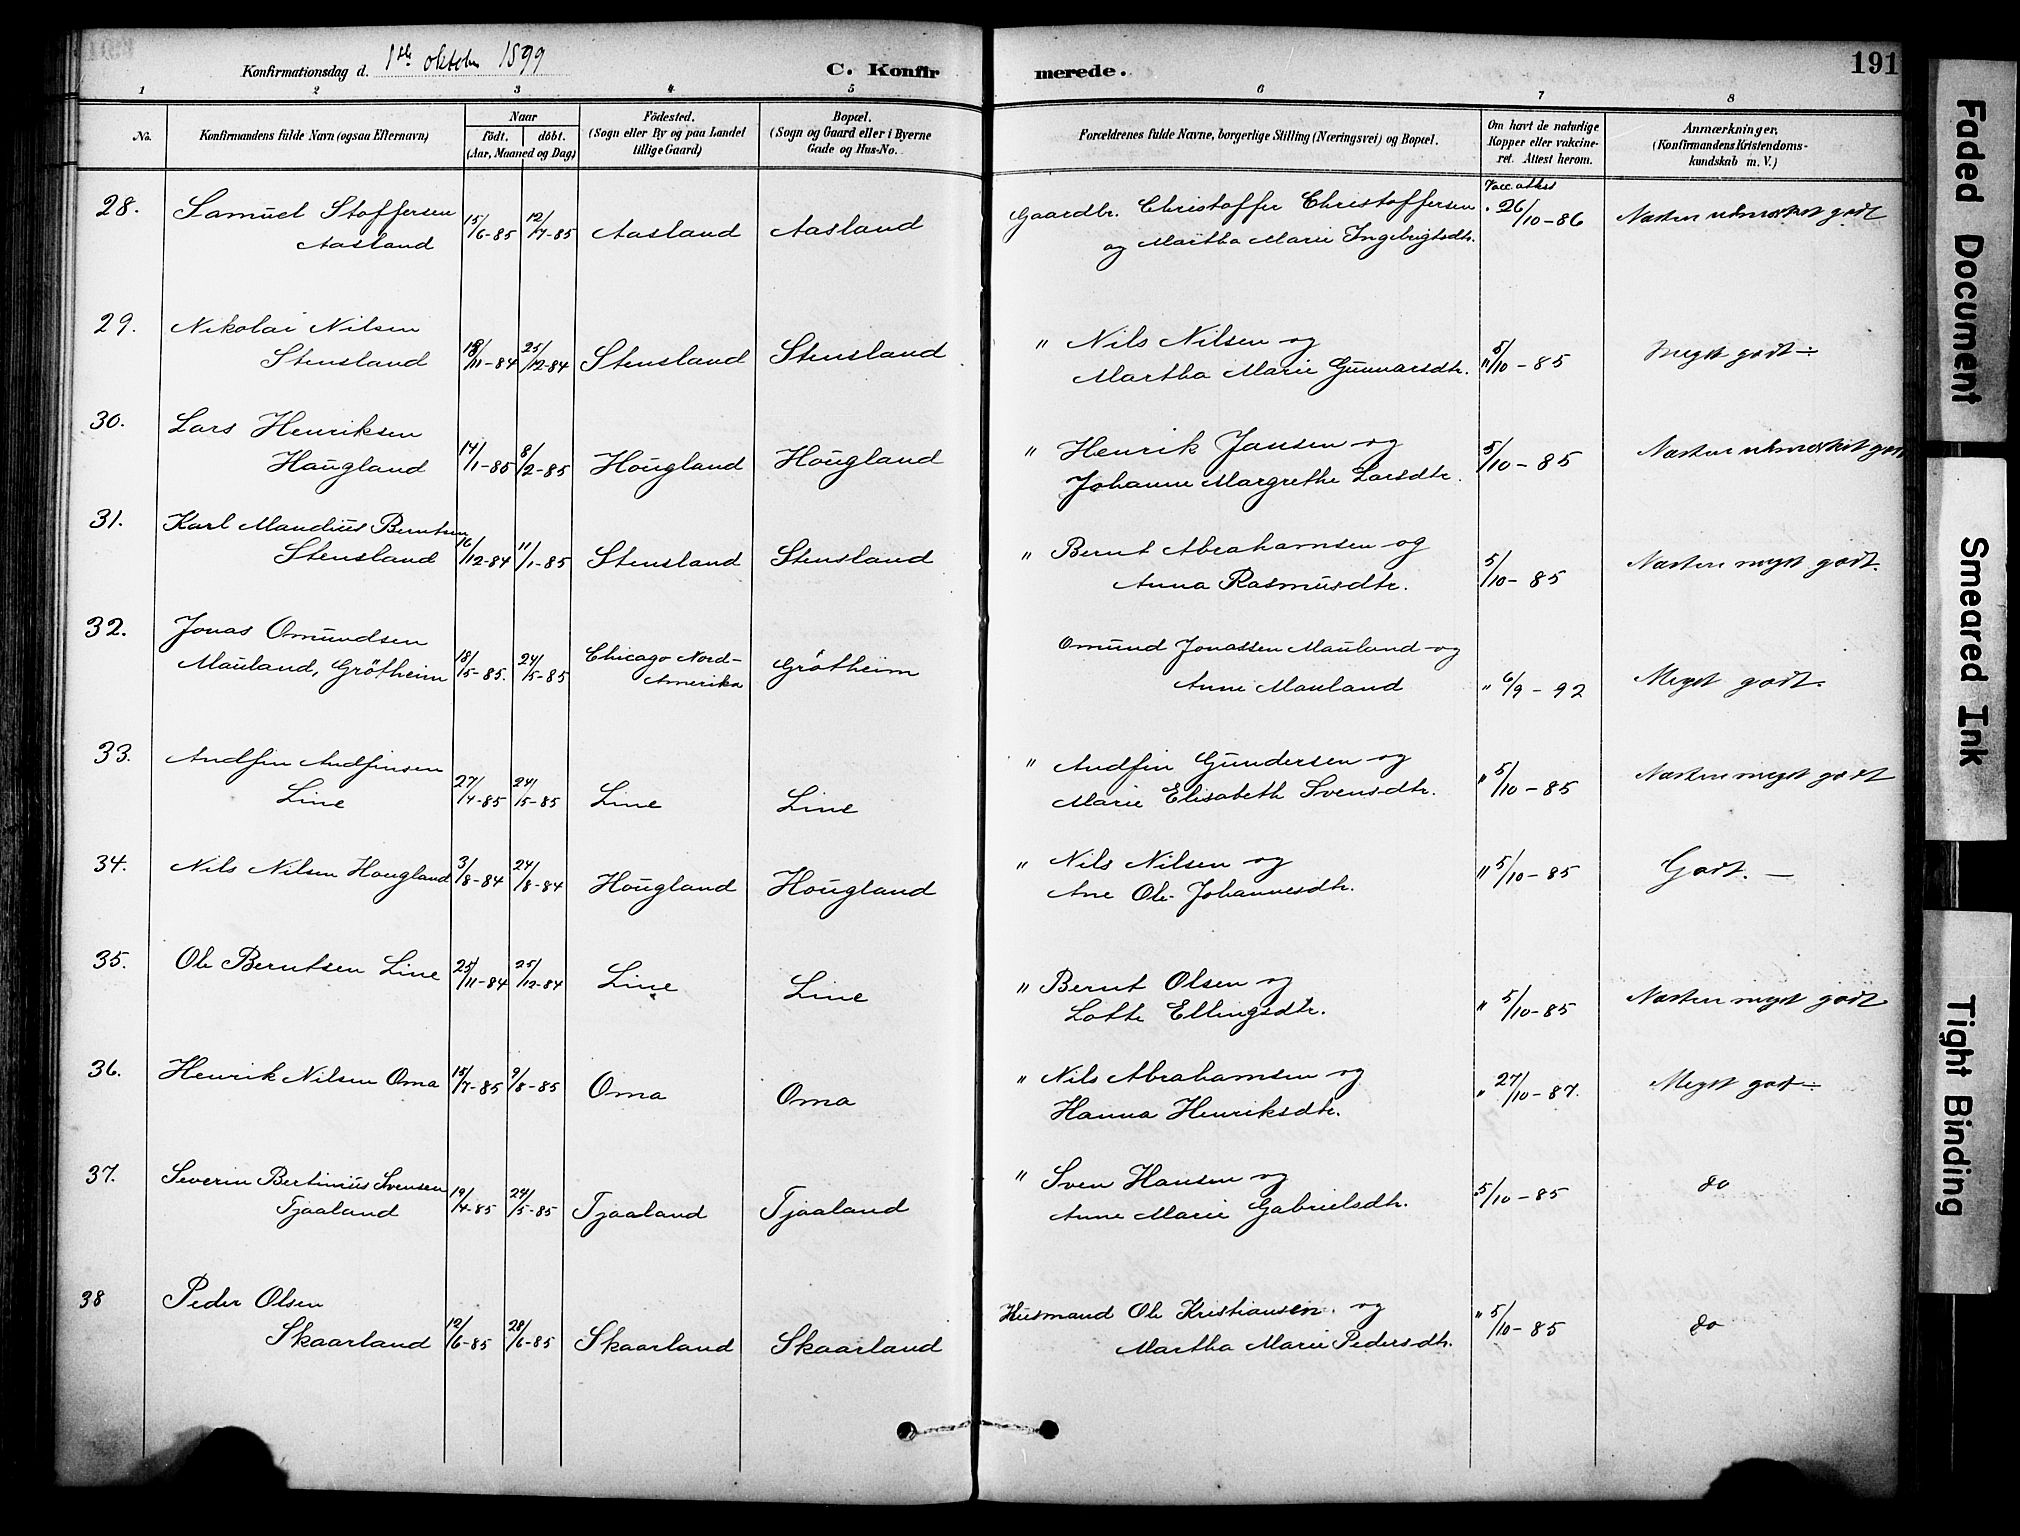 Konfirmationsdag d. 1ste oktober 1899
C. Konfir
merede.
191
1 2 3 4 5 6 7 8
No.
Konfirmandens fulde Navn (ogsaa Efternavn)
Naar
födt. döbt.
(Aar, Maaned og Dag)
Födested.
(Sogn eller By og paa Landet tillige Gaard)
Bopæl.
(Sogn og Gaard eller i Byerne Gade og Hus-No.
Forældrenes fulde Navne, borgerlige Stilling (Næringsvei) og Bopæl.
Om havt de naturlige Kopper eller vakcineret. Attest herom.
Anmærkninger.
(Konfirmandens Kristendomskundskab m. V.)
28. Samuel Stoffersen Aasland 15/6-85 12/7-85 Aasland Aasland Gaardbr. Christoffer Christoffersen og Martha Marie Ingebrigtsdtr. Vacc. attest 26/10-86 Næsten udmærket godt
29. Nikolai Nilsen Stensland 18/11-84 25/12-84 Stensland Stensland " Nils Nilsen og Martha Marie Gunnarsdtr. " 5/10-85 Meget godt ÷
30. Lars Henriksen Haugland 14/1-85 8/2-85 Hougland Hougland " Henrik Jansen og Johanne Margrethe Larsdtr. 5/10-85 Næsten udmærket godt
31. Karl Mandius Berntsen Stensland 16/12-84 11/1-85 Stensland Stensland " Bernt Abrahamsen og Anna Rasmusdtr. 5/10-85 Næsten meget godt.
32. Jonas Omundsen Mauland, Grötheim 18/5-85. 24/5-85 Chicago Nord-Amerika Grötheim Omund Jonassen Mauland og Anne Mauland " 6/9-92 Meget godt.
33. Andfin Andfinsen Line 27/4-85 24/5-85 Line Line " Andfin Gundersen og Marie Elisabeth Svensdtr. " 5/10-85 Næsten meget godt
34. Nils Nilsen Hougland 3/8-84 24/8-84 Hougland Hougland " Nils Nilsen og Ane Ol. Johannesdtr. " 5/10-85 Godt. —
35. Ole Berntsen Line 25/11-84 25/12-84 Line Line " Bernt Olsen og Lotte Ellingsdtr. " 5/10-85 Næsten meget godt
36. Henrik Nilsen Oma 15/7-85 9/8-85 Oma Oma " Nils Abrahamsen og Hanna Henriksdtr. " 27/10-87. Meget godt ÷
37. Severin Bertinius Svensen Tjaaland 19/4-85 24/5-85 Tjaaland Tjaaland " Sven Hansen og Anne Marie Gabrielsdtr. 5/10-85 do
38 Peder Olsen Skaarland 12/6-85 28/6-85 Skaarland Skaarland Husmand Ole Kristiansen. og Martha Marie Pedersdtr. " 5/10-85 do
Faded Document
Smeared Ink
Tight Binding